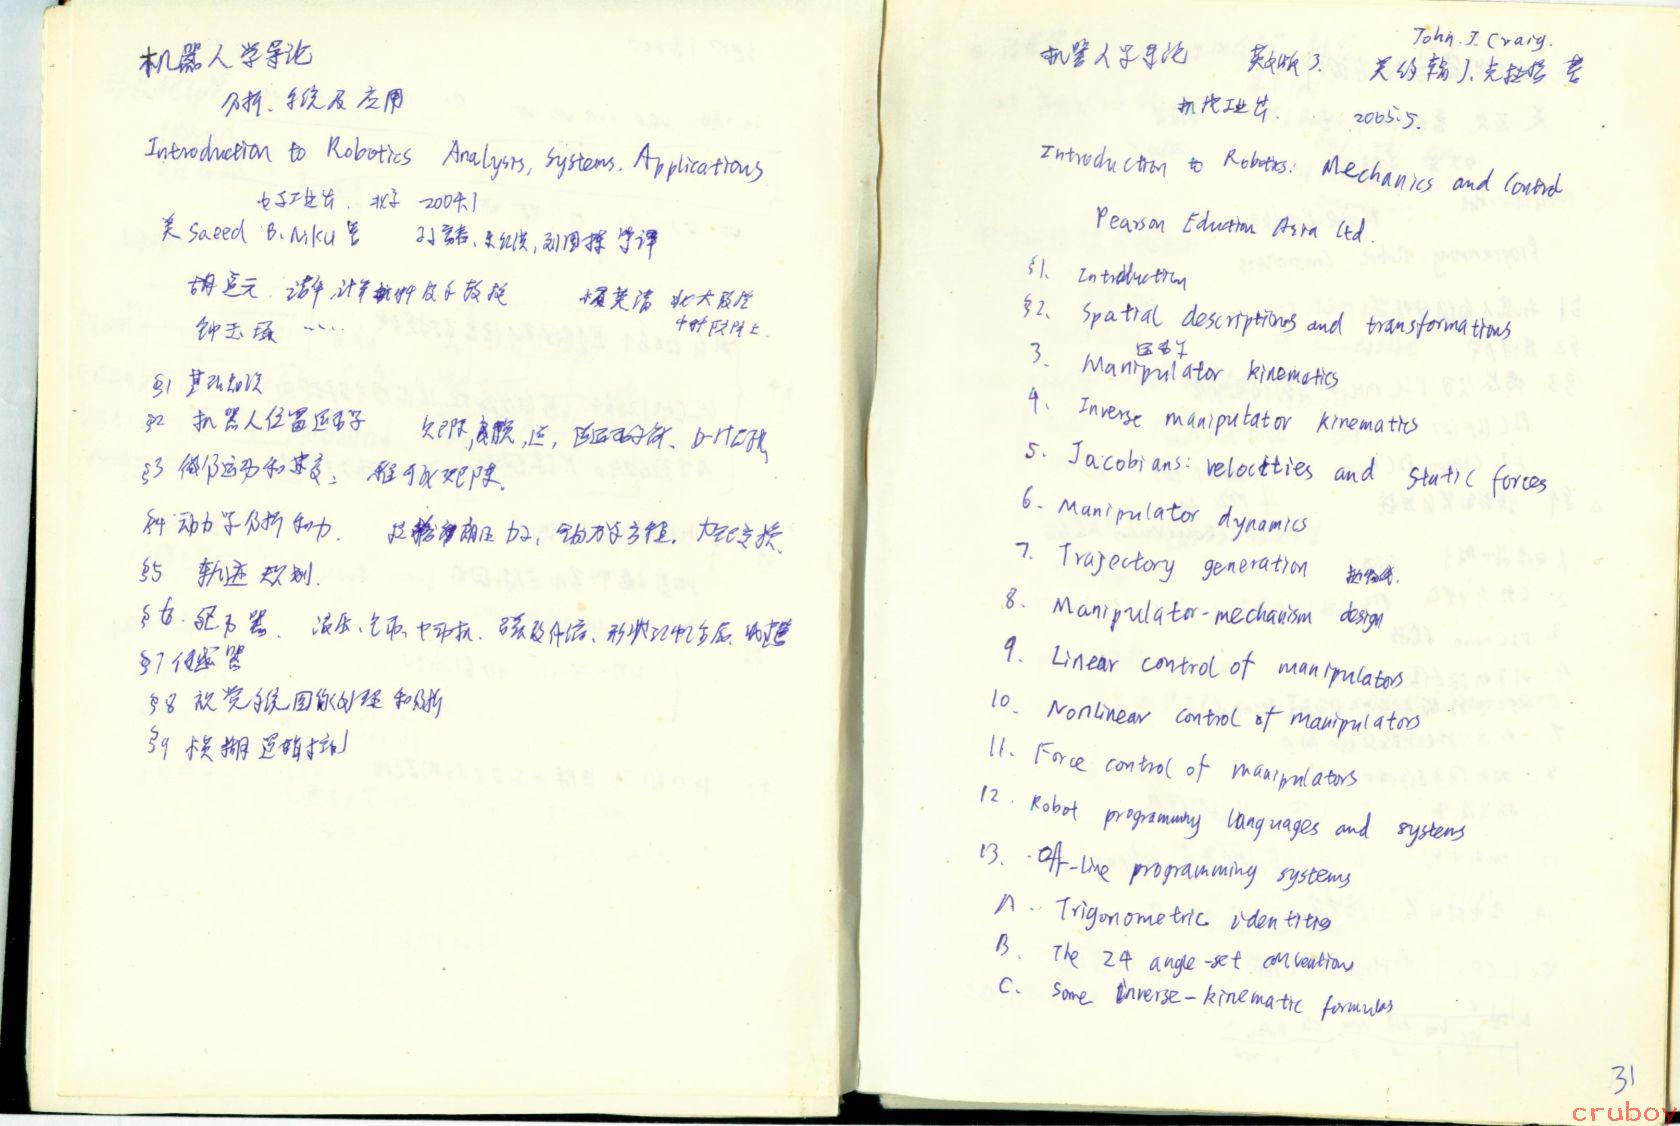 机器人学导论
分析、系统及应用
Introduction to Robotics Analysis, Systems, Applications
电子工业出. 北京 2004.1
美 Saeed B. Niku 著 孙富春、朱纪洪、刘国栋 等译
§1 基础知识
§2 机器人位置运动学
§3 微分运动和速度:
§4 动力学分析和力.
§5 轨迹规划.
§6. 驱动器.
§7 传感器
§8 视觉系统图像处理和分析
§9 模糊逻辑控制
John. J. Craig.
机器人学导论 英文版3. 美 约翰J.克拉格 著
机械工业出. 2005.5.
Introduction to Robotics: Mechanics and Control
Pearson Eduction Asia Ltd.
§1. Introduction
§2. Spatial descriptions and transformations
运动学
3. Manipulator kinematics
4. Inverse manipulator kinematics
5. Jacobians: velocities and static forces
6. Manipulator dynamics
7. Trajectory generation
8. Manipulator-mechanism design
9. Linear control of manipulators
10. Nonlinear control of manipulators
11. Force control of manipulators
12. Robot programming languages and systems
13. Off-line programming systems
A. Trigonometric identities
B. The 24 angle-set conventions
C. Some inverse-kinematic formulas
31
cruboy